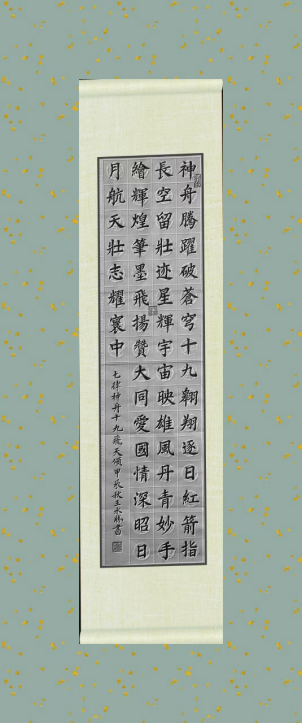 神舟騰躍破蒼穹十九翱翔逐日紅箭指
長空留壯迹星輝宇宙映雄風丹青妙手
繪輝煌筆墨飛揚贊大同愛國情深昭日
月航天壯志耀寰中
七律神舟十九飛天頌甲辰秋王永勝書